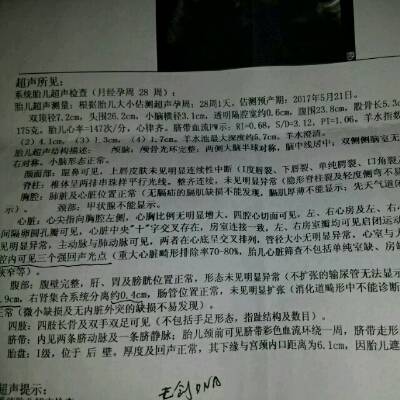 超声所见：
系统胎儿超声检查（月经孕周 28 周）：
胎儿超声测量：根据胎儿大小估测超声孕周：28周1天，估测预产期：2017年5月21日。
双顶径7.2cm，头围26.2cm，小脑横径3.1cm，透明隔腔宽约0.6cm，腹围23.8cm，股骨长5.3
175克，胎儿心率=147次/分，心律齐。脐带血流PW示：RI=0.68，S/D=3.12，PT=1.06，羊水指数
（2）4.1cm，（3）1.3cm （4）1.7cm，羊水池最大深度约5.7cm，羊水清。
胎儿超声结构描述： 颅脑：颅骨光环完整；两侧大脑半球对称，脑中线居中；双侧侧脑室无
右对称。小脑形态正常。
颜面部：眼鼻可见，上唇皮肤未见明显连续性中断（I度唇裂、下唇裂、单纯腭裂、口角裂
脊柱：椎体呈两排串珠样平行光线，整齐连续，未见明显异常（隐形脊柱裂及轻度侧弯不易
胸腔：肺脏及心脏位置正常（无膈疝的膈肌缺损不能发现，膈肌厚薄不能显示；先天气道闭
颈部：甲状腺不能显示。
心脏：心尖指向胸腔左侧，心胸比例无明显增大。四腔心切面可见，左、右心房及左、右心
间隔卵圆孔瓣可见，心脏中央"十"字交叉存在，房室连接一致，左、右房室瓣均可见启闭运动
见明显异常，主动脉与肺动脉可见，两者在心底呈交叉排列，管径大小无明显异常。心室与大
腔内可见三个强回声光点（重大心脏畸形排除率70-80%，胎儿心脏筛查不包括单纯室缺、房缺
狭窄等）。
腹部：腹壁完整，肝、胃及膀胱位置正常，形态未见明显异常（不扩张的输尿管无法显示
.9cm，右肾集合系统分离约0.4cm，肠管位置正常，未见明显扩张（消化道畸形中不能诊断
正常（微小缺损及无内脏外突的缺损不易发现）。
四肢：四肢长骨及双手双足可见（不包括手足形态，指趾结构及数目）。
脐带：内见两条脐动脉及一条脐静脉；胎儿颈前可见脐带彩色血流环绕一周，脐带走形
胎盘：I级，位于 后 壁。厚度及回声正常，其下缘与宫颈内口距离为6.1cm，因胎儿遮
超声提示：
无创DNA